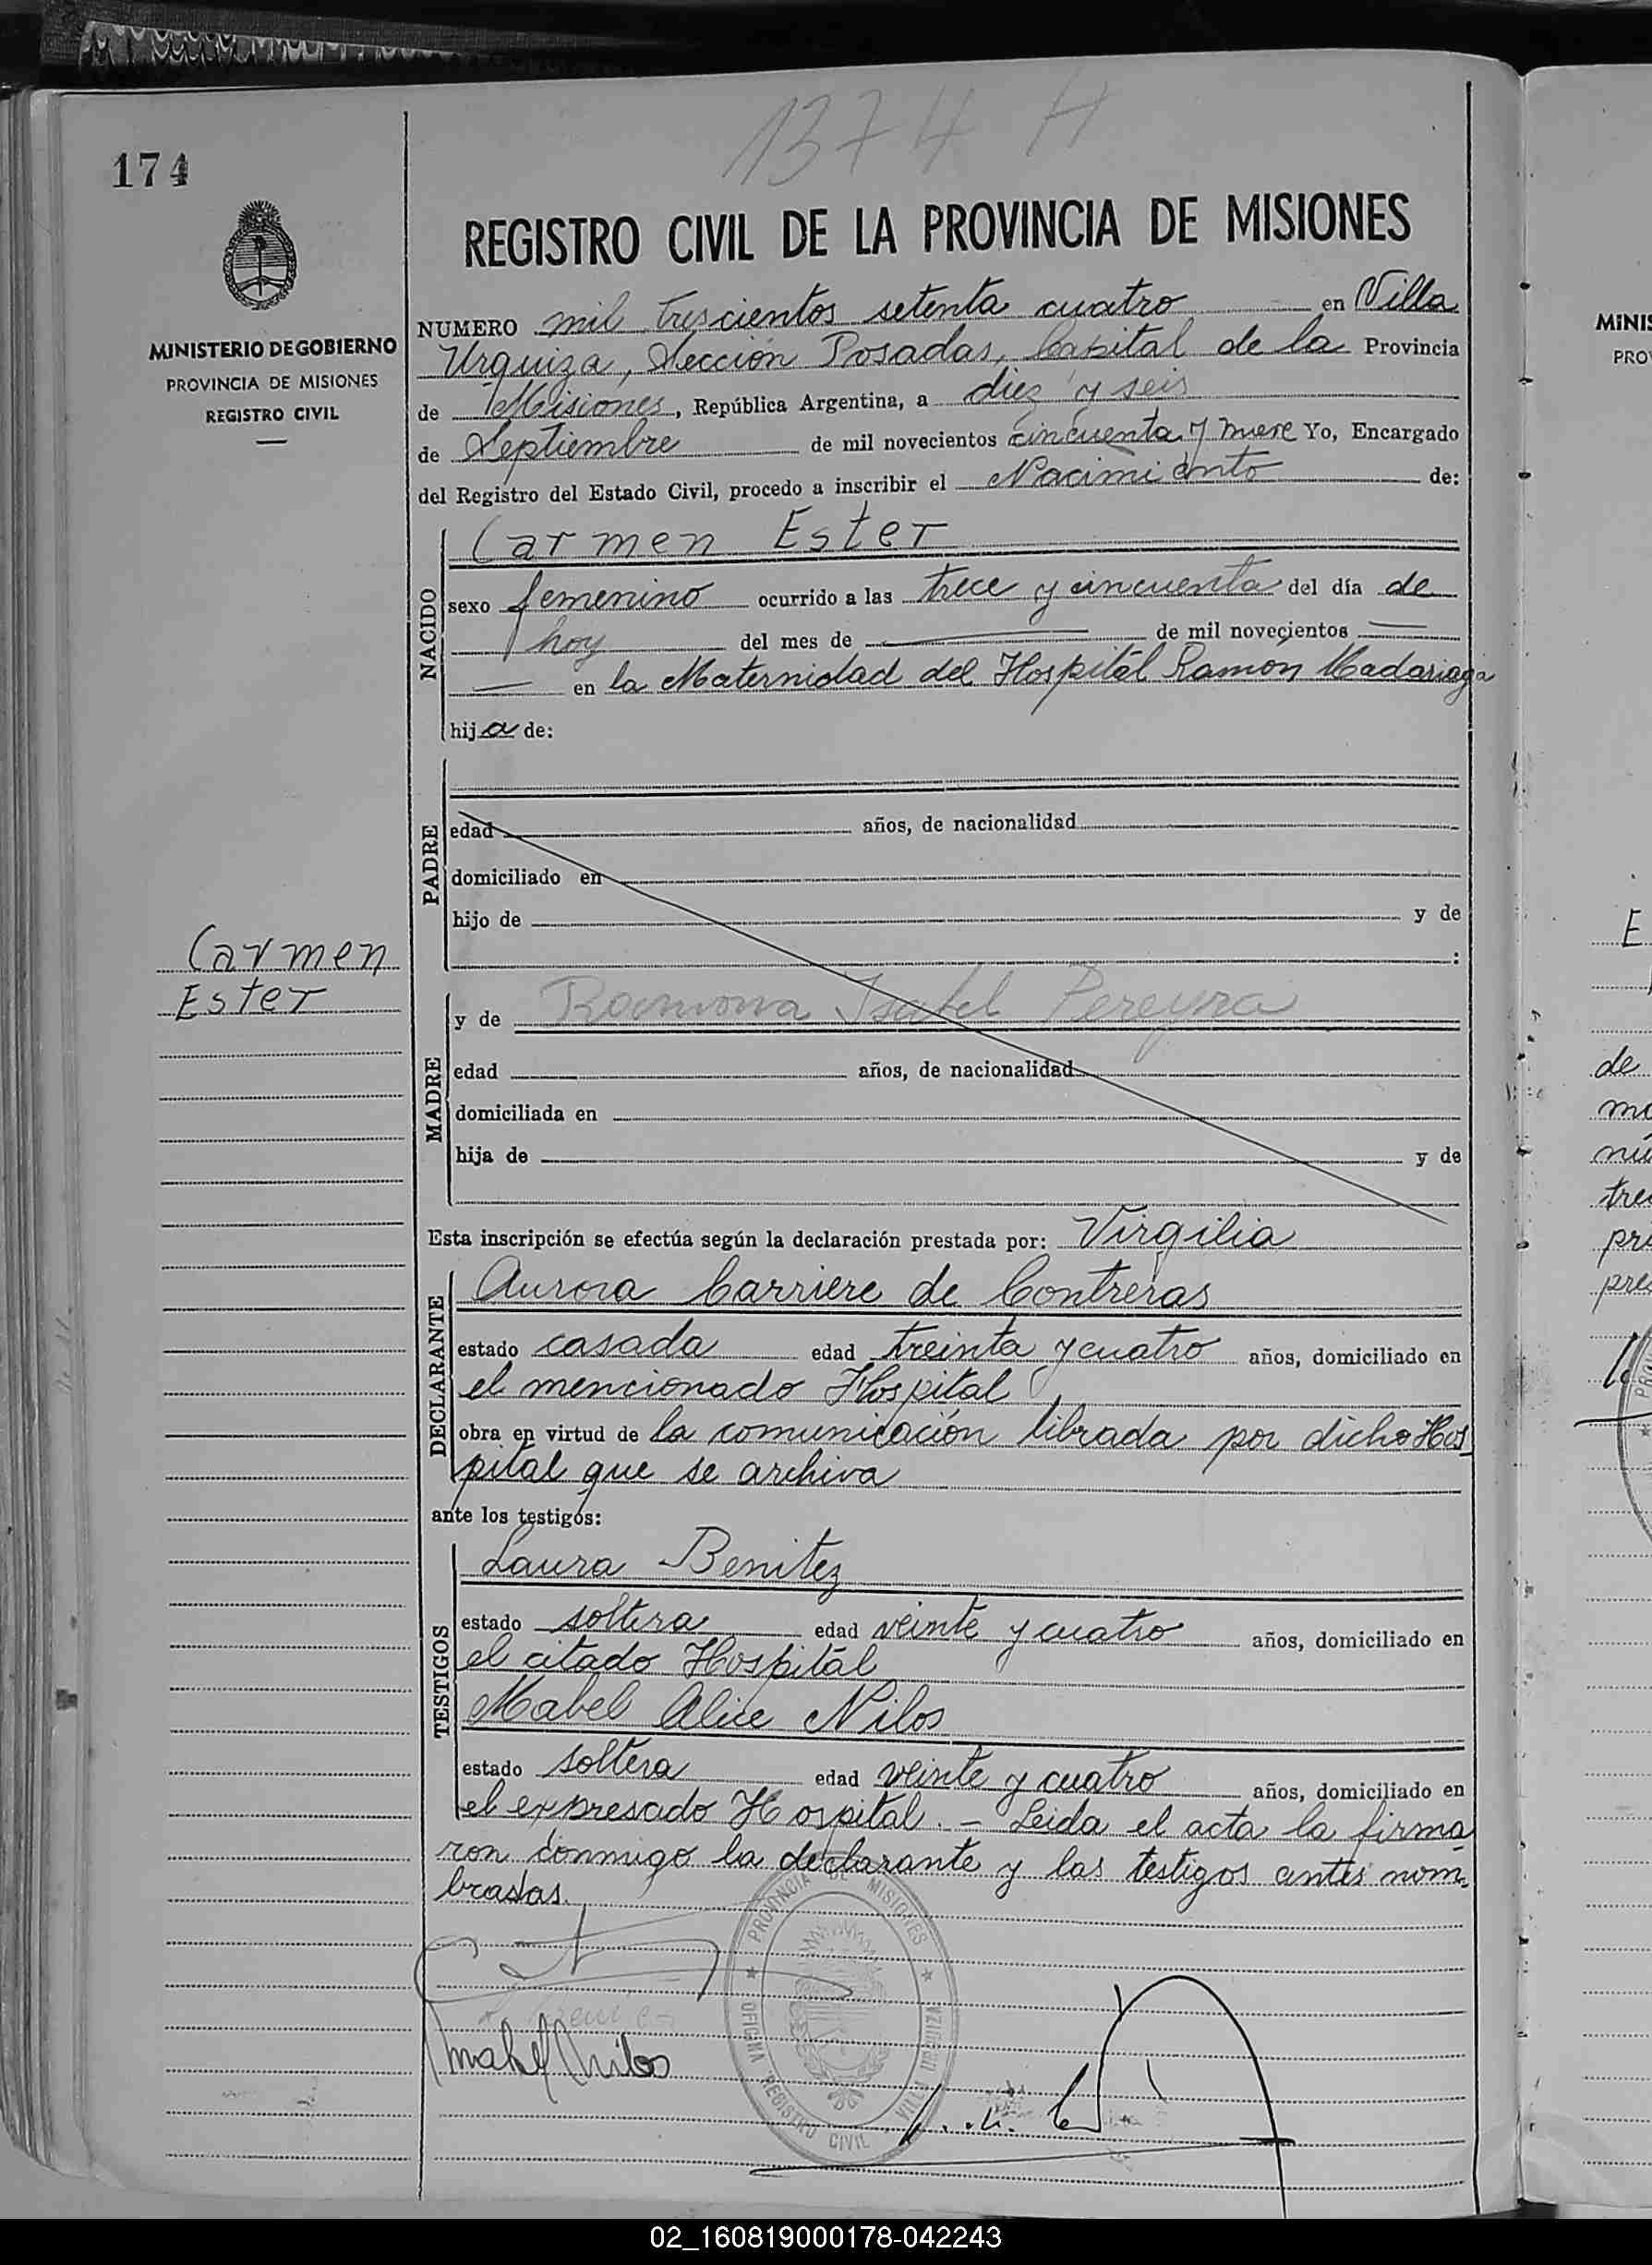 1374 H
174
REGISTRO CIVIL DE LA PROVINCIA DE MISIONES
MINISTERIO DE GOBIERNO
PROVINCIA DE MISIONES
REGISTRO CIVIL
NUMERO mil trescientos setenta cuatro en Villa
Urquiza, Sección Posadas, Capital de la Provincia
de Misiones, República Argentina, a diez y seis
de Septiembre de mil novecientos cincuenta y nueve Yo, Encargado
del Registro del Estado Civil, procedo a inscribir el Nacimiento de:
NACIDO
Carmen Ester
sexo femenino ocurrido a las trece y cincuenta del día de
hoy del mes de — de mil novecientos —
— en la Maternidad del Hospital Ramón Madariaga
hija de:
PADRE
edad años, de nacionalidad
domiciliado en
hijo de y de
:
Carmen
Ester
MADRE
y de Ramona Isabel Pereyra
edad años, de nacionalidad
domiciliada en
hija de y de
Esta inscripción se efectúa según la declaración prestada por: Virgilia
DECLARANTE
Aurora Carriere de Contreras
estado casada edad treinta y cuatro años, domiciliado en
el mencionado Hospital
obra en virtud de la comunicación librada por dicho Hos
pital que se archiva
ante los testigos:
TESTIGOS
Laura Benitez
estado soltera edad veinte y cuatro años, domiciliado en
el citado Hospital
Mabel Alice Nilos
estado soltera edad veinte y cuatro años, domiciliado en
el expresado Hospital. – Leida el acta la firma
ron conmigo la declarante y las testigos antes nom
bradas.
PROVINCIA DE MISIONES
OFICINA REGISTRO CIVIL
VILLA URQUIZA
Mabel Nilos
MINIS
PRO
E
de
mo
nú
tre
pre
02_160819000178-042243